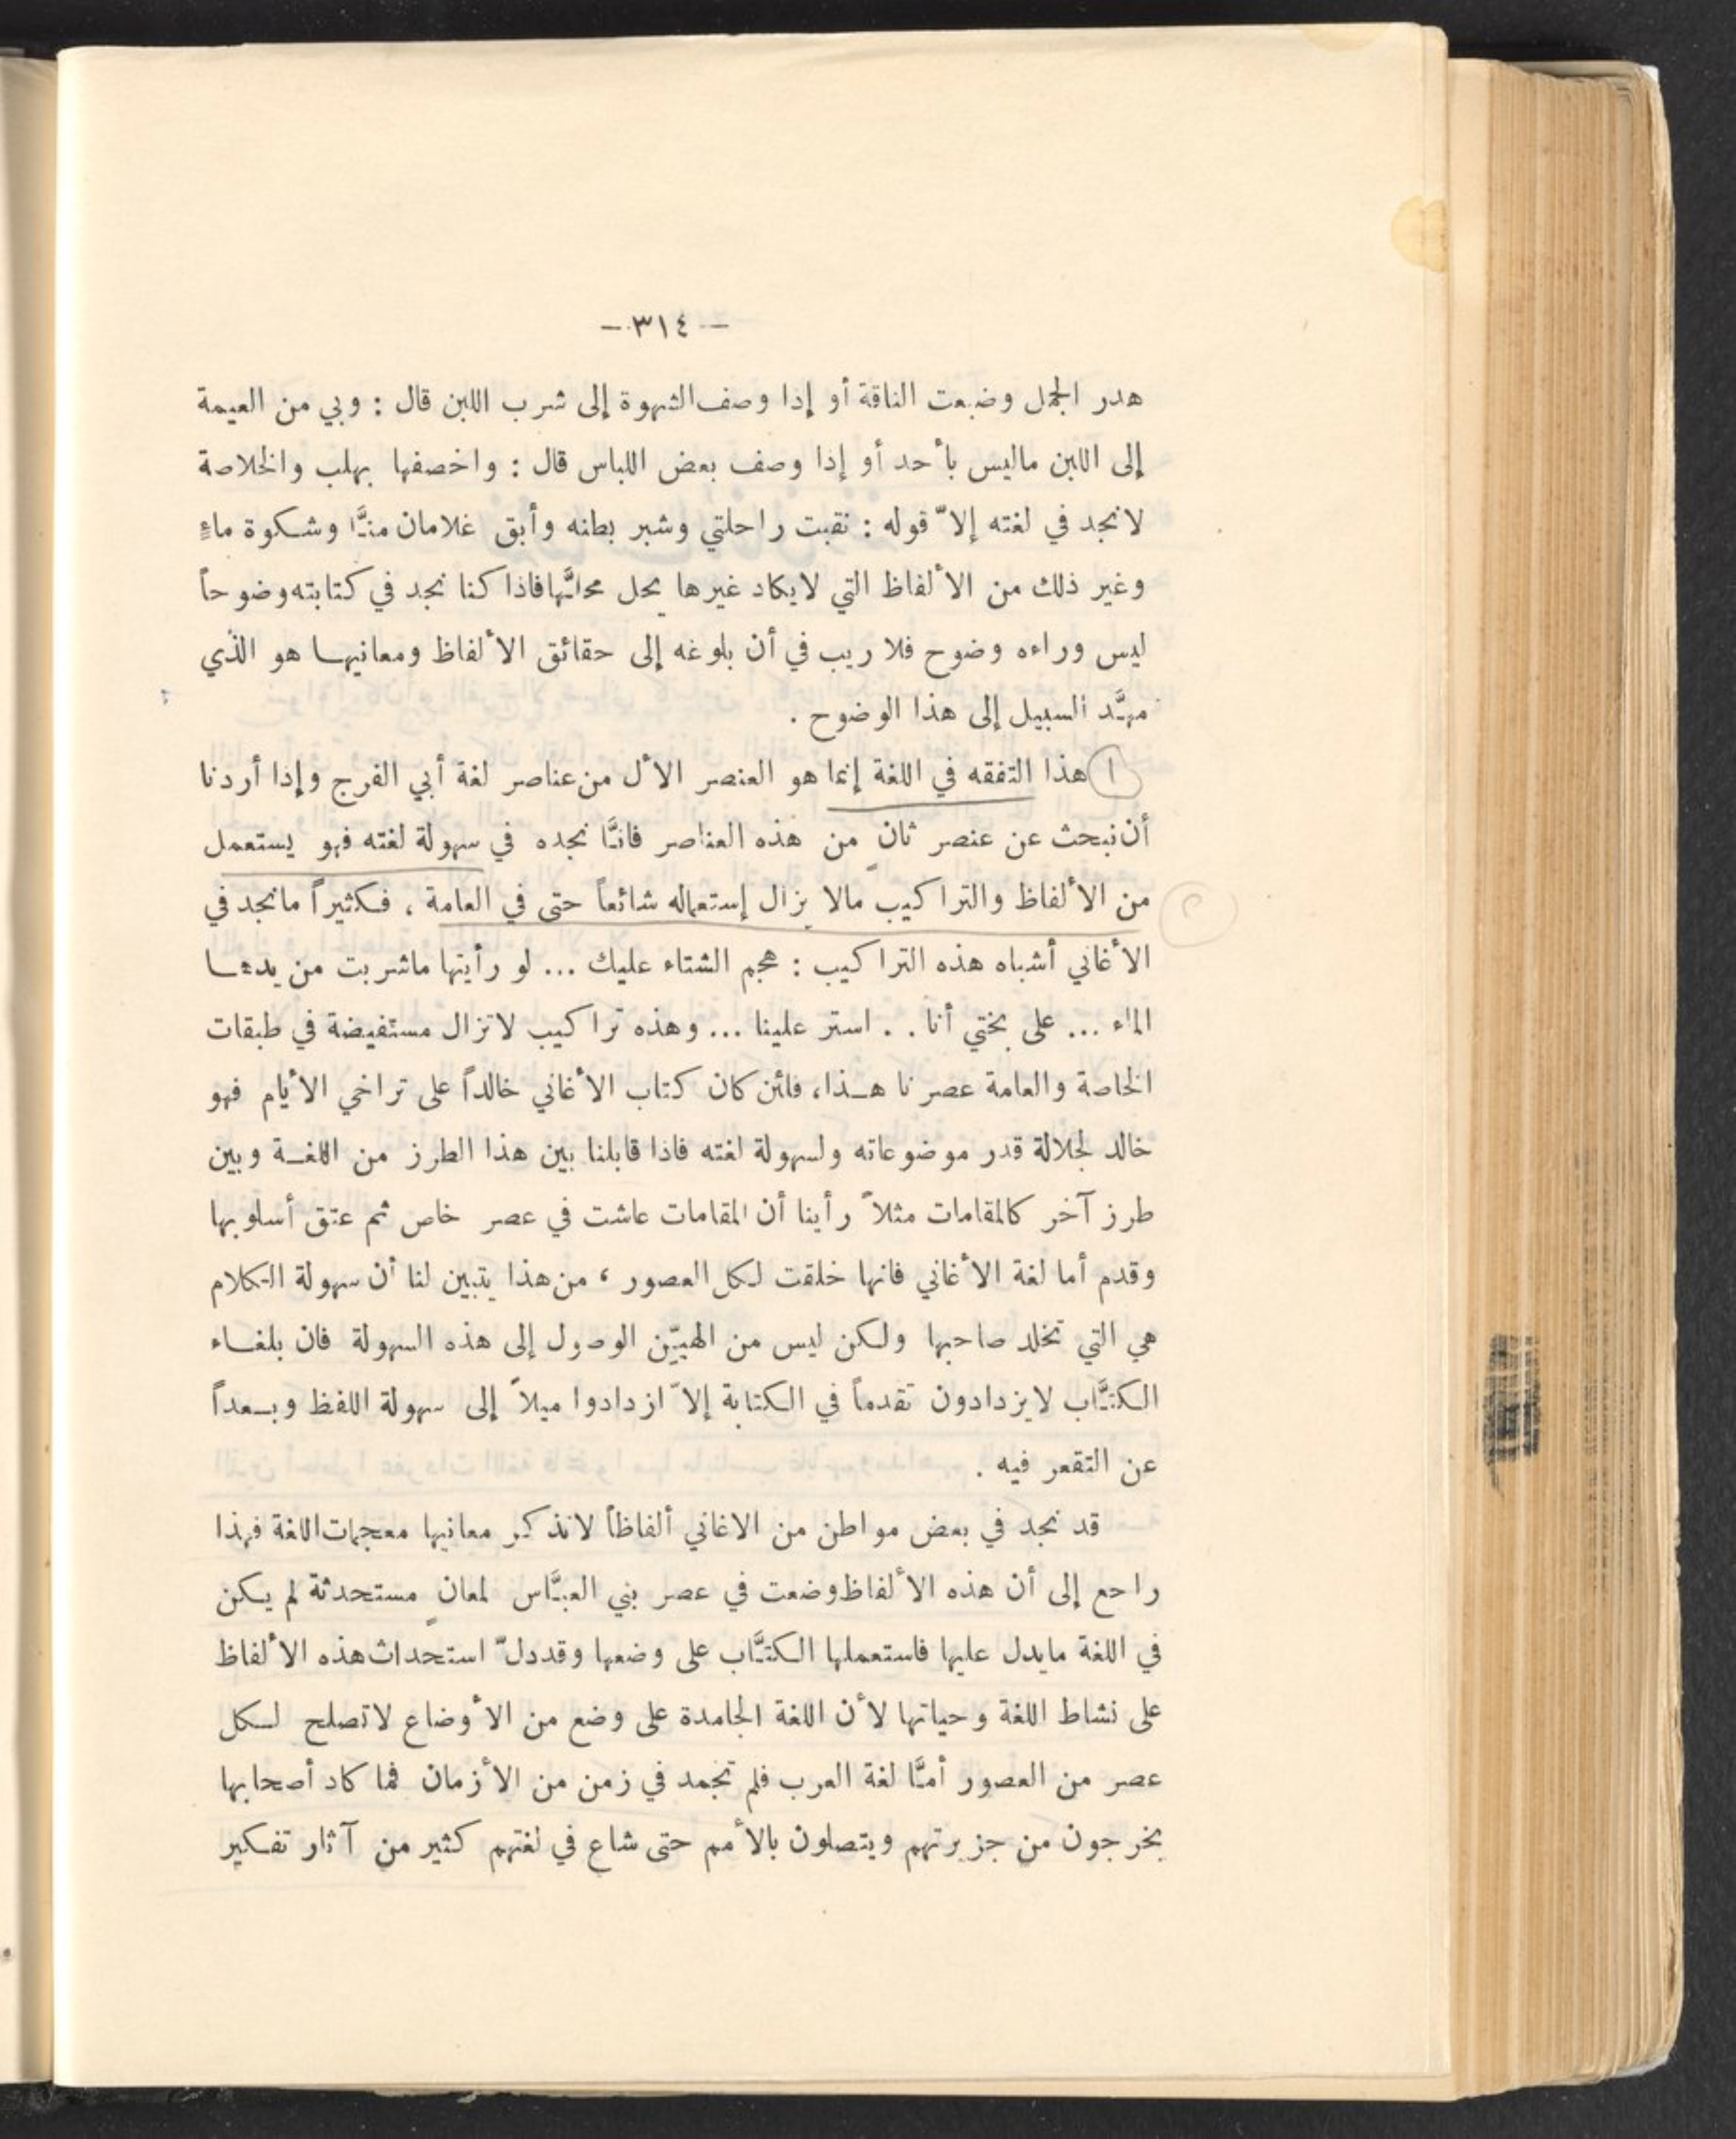 — ٣١٤ —
هدر الجمل وضبعت الناقة أو إذا وصف الشهوة إلى شرب اللبن قال : وبي من العيمة
إلى اللبن ماليس بأحد أو إذا وصف بعض اللباس قال : واخصفها بهلب والخلاصة
لانجد في لغته إلاّ قوله : نقبت راحلتي وشبر بطنه وأبق غلامان منَّا وشكوة ماء
وغير ذلك من الألفاظ التي لايكاد غيرها يحل محلَّها فاذا كنا نجد في كتابته وضوحاً
ليس وراءه وضوح فلا ريب في أن بلوغه إلى حقائق الألفاظ ومعانيها هو الذي
مهَّد السبيل إلى هذا الوضوح .
١ هذا التفقه في اللغة إنما هو العنصر الأل من عناصر لغة أبي الفرج وإذا أردنا
أن نبحث عن عنصر ثانٍ من هذه العناصر فانَّا نجده في سهولة لغته فهو يستعمل
٢ من الألفاظ والتراكيب مالا يزال إستعماله شائعاً حتى في العامة ، فكثيراً مانجد في
الأغاني أشباه هذه التراكيب : هجم الشتاء عليك ... لو رأيتها ماشربت من يدها
الماء ... على بختي أنا . . استر علينا ... وهذه تراكيب لاتزال مستفيضة في طبقات
الخاصة والعامة عصرنا هذا، فلئن كان كتاب الأغاني خالداً على تراخي الأيام فهو
خالد لجلالة قدر موضوعاته ولسهولة لغته فاذا قابلنا بين هذا الطرز من اللغة وبين
طرز آخر كالمقامات مثلاً رأينا أن المقامات عاشت في عصر خاص ثم عتق أسلوبها
وقدم أما لغة الأغاني فانها خلقت لكل العصور ، من هذا يتبين لنا أن سهولة الكلام
هي التي تخلد صاحبها ولكن ليس من الهيّن الوصول إلى هذه السهولة فان بلغاء
الكتَّاب لايزدادون تقدماً في الكتابة إلاّ ازدادوا ميلاً إلى سهولة اللفظ وبعداً
عن التقعر فيه .
قد نجد في بعض مواطن من الاغاني ألفاظاً لانذكر معانيها معجمات اللغة فهذا
راجع إلى أن هذه الألفاظ وضعت في عصر بني العبَّاس لمعانٍ مستحدثة لم يكن
في اللغة مايدل عليها فاستعملها الكتَّاب على وضعها وقد دلّ استحداث هذه الألفاظ
على نشاط اللغة وحياتها لأن اللغة الجامدة على وضع من الأوضاع لاتصلح لكل
عصر من العصور أمَّا لغة العرب فلم تجمد في زمن من الأزمان فما كاد أصحابها
يخرجون من جزيرتهم ويتصلون بالأمم حتى شاع في لغتهم كثير من آثار تفكير